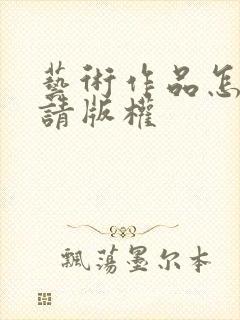 藝術作品怎
請版權
飄蕩墨尔本